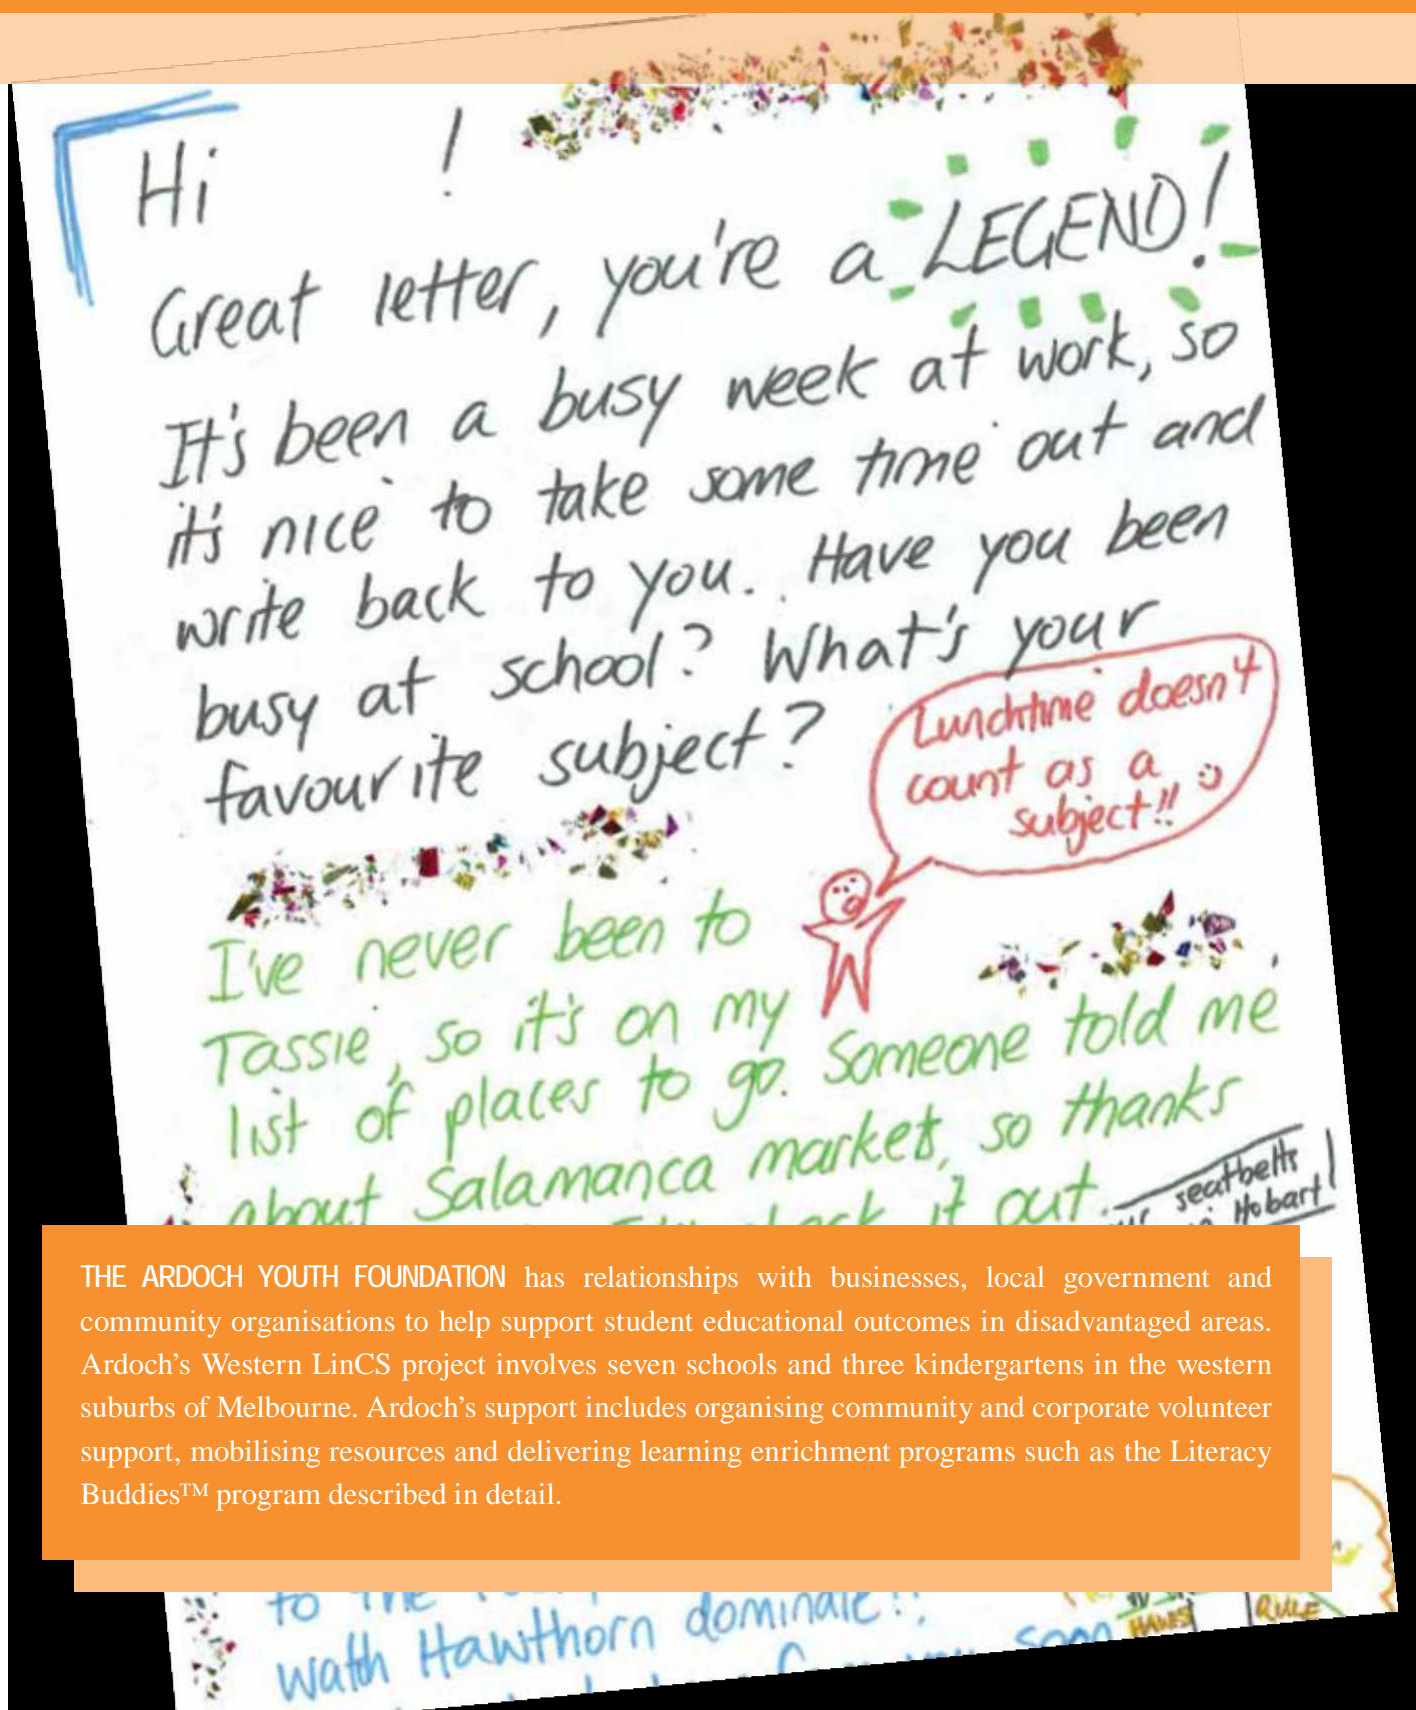 Hi !
Great letter, you're a LEGEND!
It's been a busy week at work, so
it's nice to take some time out and
write back to you. Have you been
busy at school? What's your
favourite subject?
Lunchtime doesn't
count as a
subject!!
I've never been to
Tassie, so it's on my
list of places to go. Someone told me
about Salamanca market, so thanks
it out.
seatbelts
Hobart!
THE ARDOCH YOUTH FOUNDATION has relationships with businesses, local government and
community organisations to help support student educational outcomes in disadvantaged areas.
Ardoch’s Western LinCS project involves seven schools and three kindergartens in the western
suburbs of Melbourne. Ardoch’s support includes organising community and corporate volunteer
support, mobilising resources and delivering learning enrichment programs such as the Literacy
Buddies™ program described in detail.
to the
dominate!!
HAWKS RULE
watch Hawthorn
soon